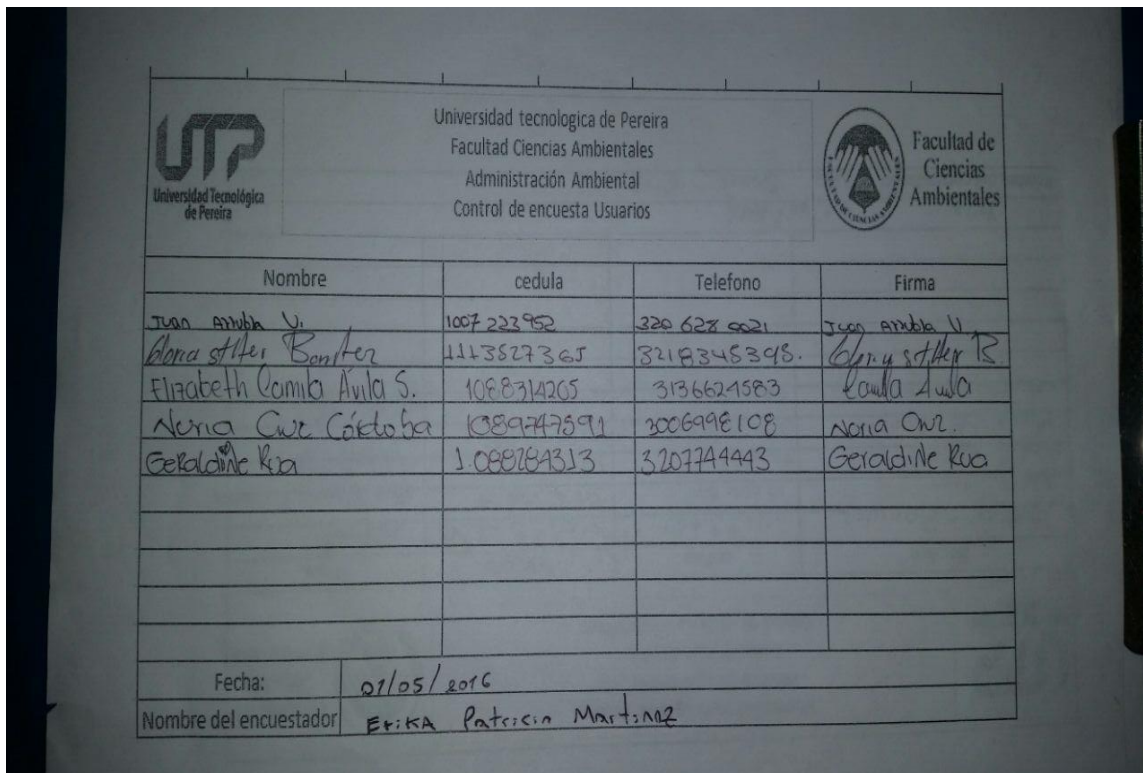 UTP
Universidad Tecnológica
de Pereira
Universidad tecnologica de Pereira
Facultad Ciencias Ambientales
Administración Ambiental
Control de encuesta Usuarios
FACULTAD DE CIENCIAS AMBIENTALES
Facultad de
Ciencias
Ambientales
Nombre cedula Telefono Firma
Juan Arrubla V. 1007 223952 320 628 0021 Juan Arrubla V
Benitez 1113527365 3218345395.
Elizabeth Camila Ávila S. 1088314205 3136624583 Camila Avila
Córdoba 1089747591 3006998108
Geraldine Rua 1.088284313 3207744443 Geraldine Rua
Fecha: 01/05/2016
Nombre del encuestador Erika Patricia Martinez